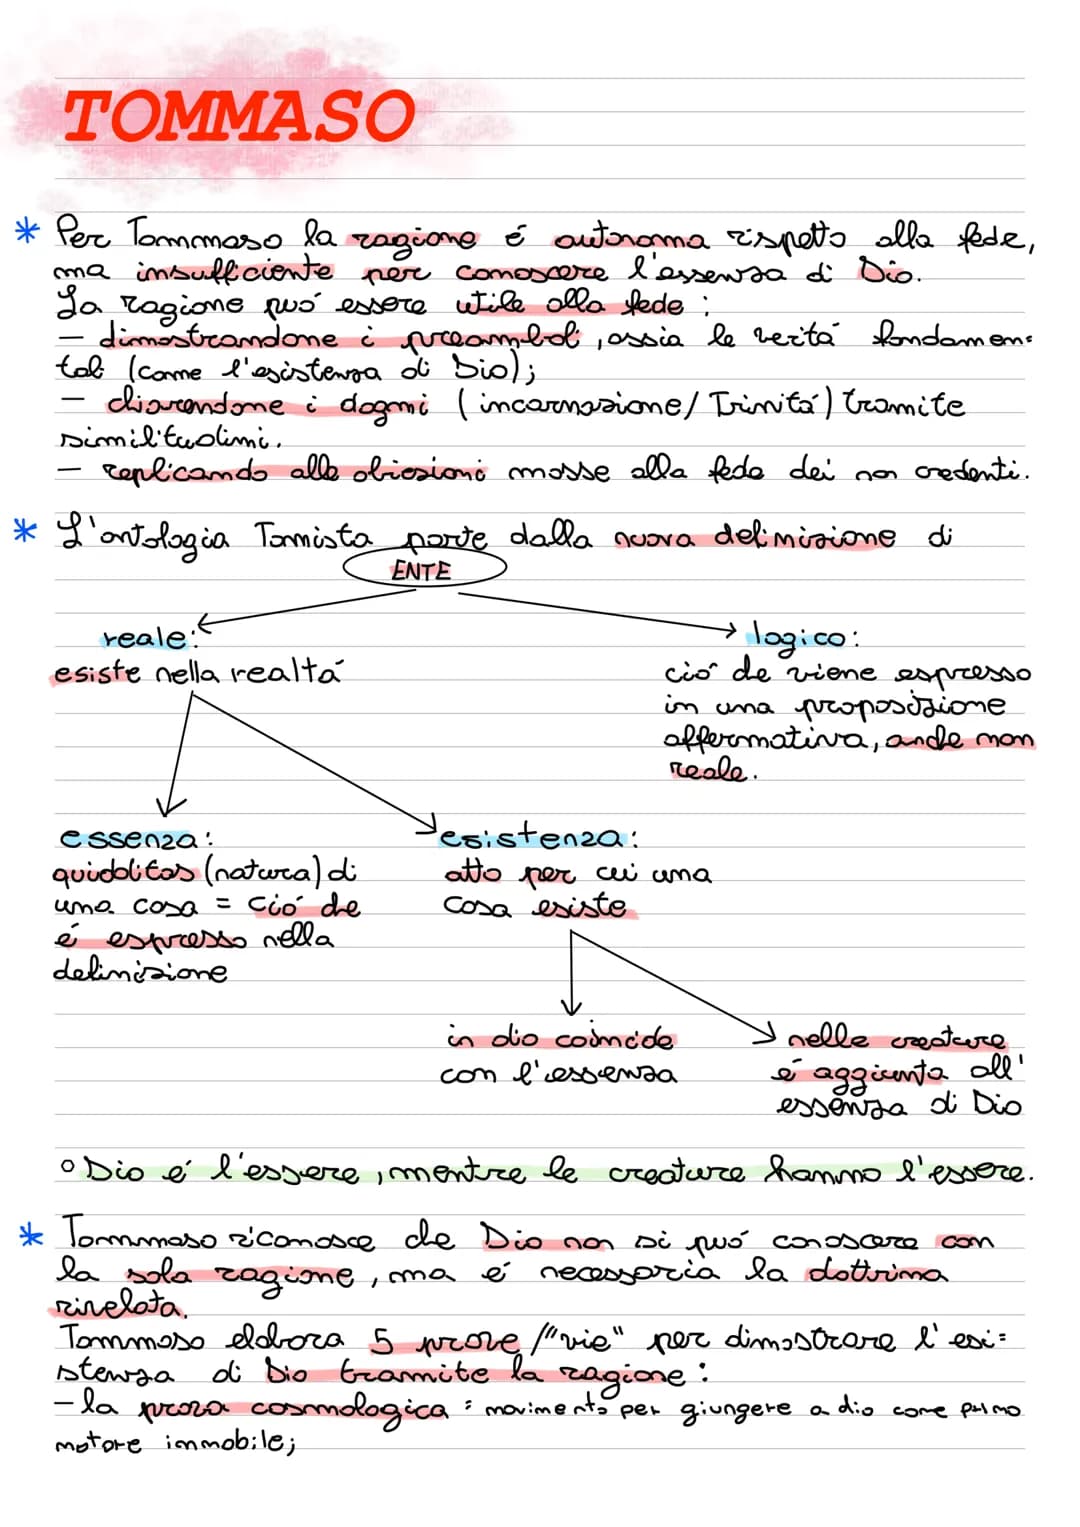 TOMMASO
* Per Tommaso la ragione é autonoma rispetto alla fede,
ma insufficiente per conoscere l'essenza di Dio.
La ragione puó essere utile alla fede:
- dimostrandone i preamboli, ossia le veritá fondamen=
tali (come l'esistenza di Dio);
- chiarendone i dogmi (incarnazione/Trinitá) tramite
similitudini.
- replicando alle obiezioni mosse alla fede dei non credenti.
* L'ontologia Tomista parte dalla nuova definizione di
ENTE
reale: logico:
esiste nella realtá ció che viene espresso
in una proposizione
affermativa, anche non
reale.
essenza: esistenza:
quidditas (natura) di atto per cui una
una cosa = ció che cosa esiste
é espresso nella
definizione
in dio coincide nelle creature
con l'essenza é aggiunta all'
essenza di Dio
° Dio é l'essere, mentre le creature hanno l'essere.
* Tommaso riconosce che Dio non si puó conoscere con
la sola ragione, ma é necessaria la dottrina
rivelata.
Tommaso elabora 5 prove/"vie" per dimostrare l'esi=
stenza di Dio tramite la ragione:
- la prova cosmologica: movimento per giungere a dio come primo
motore immobile;